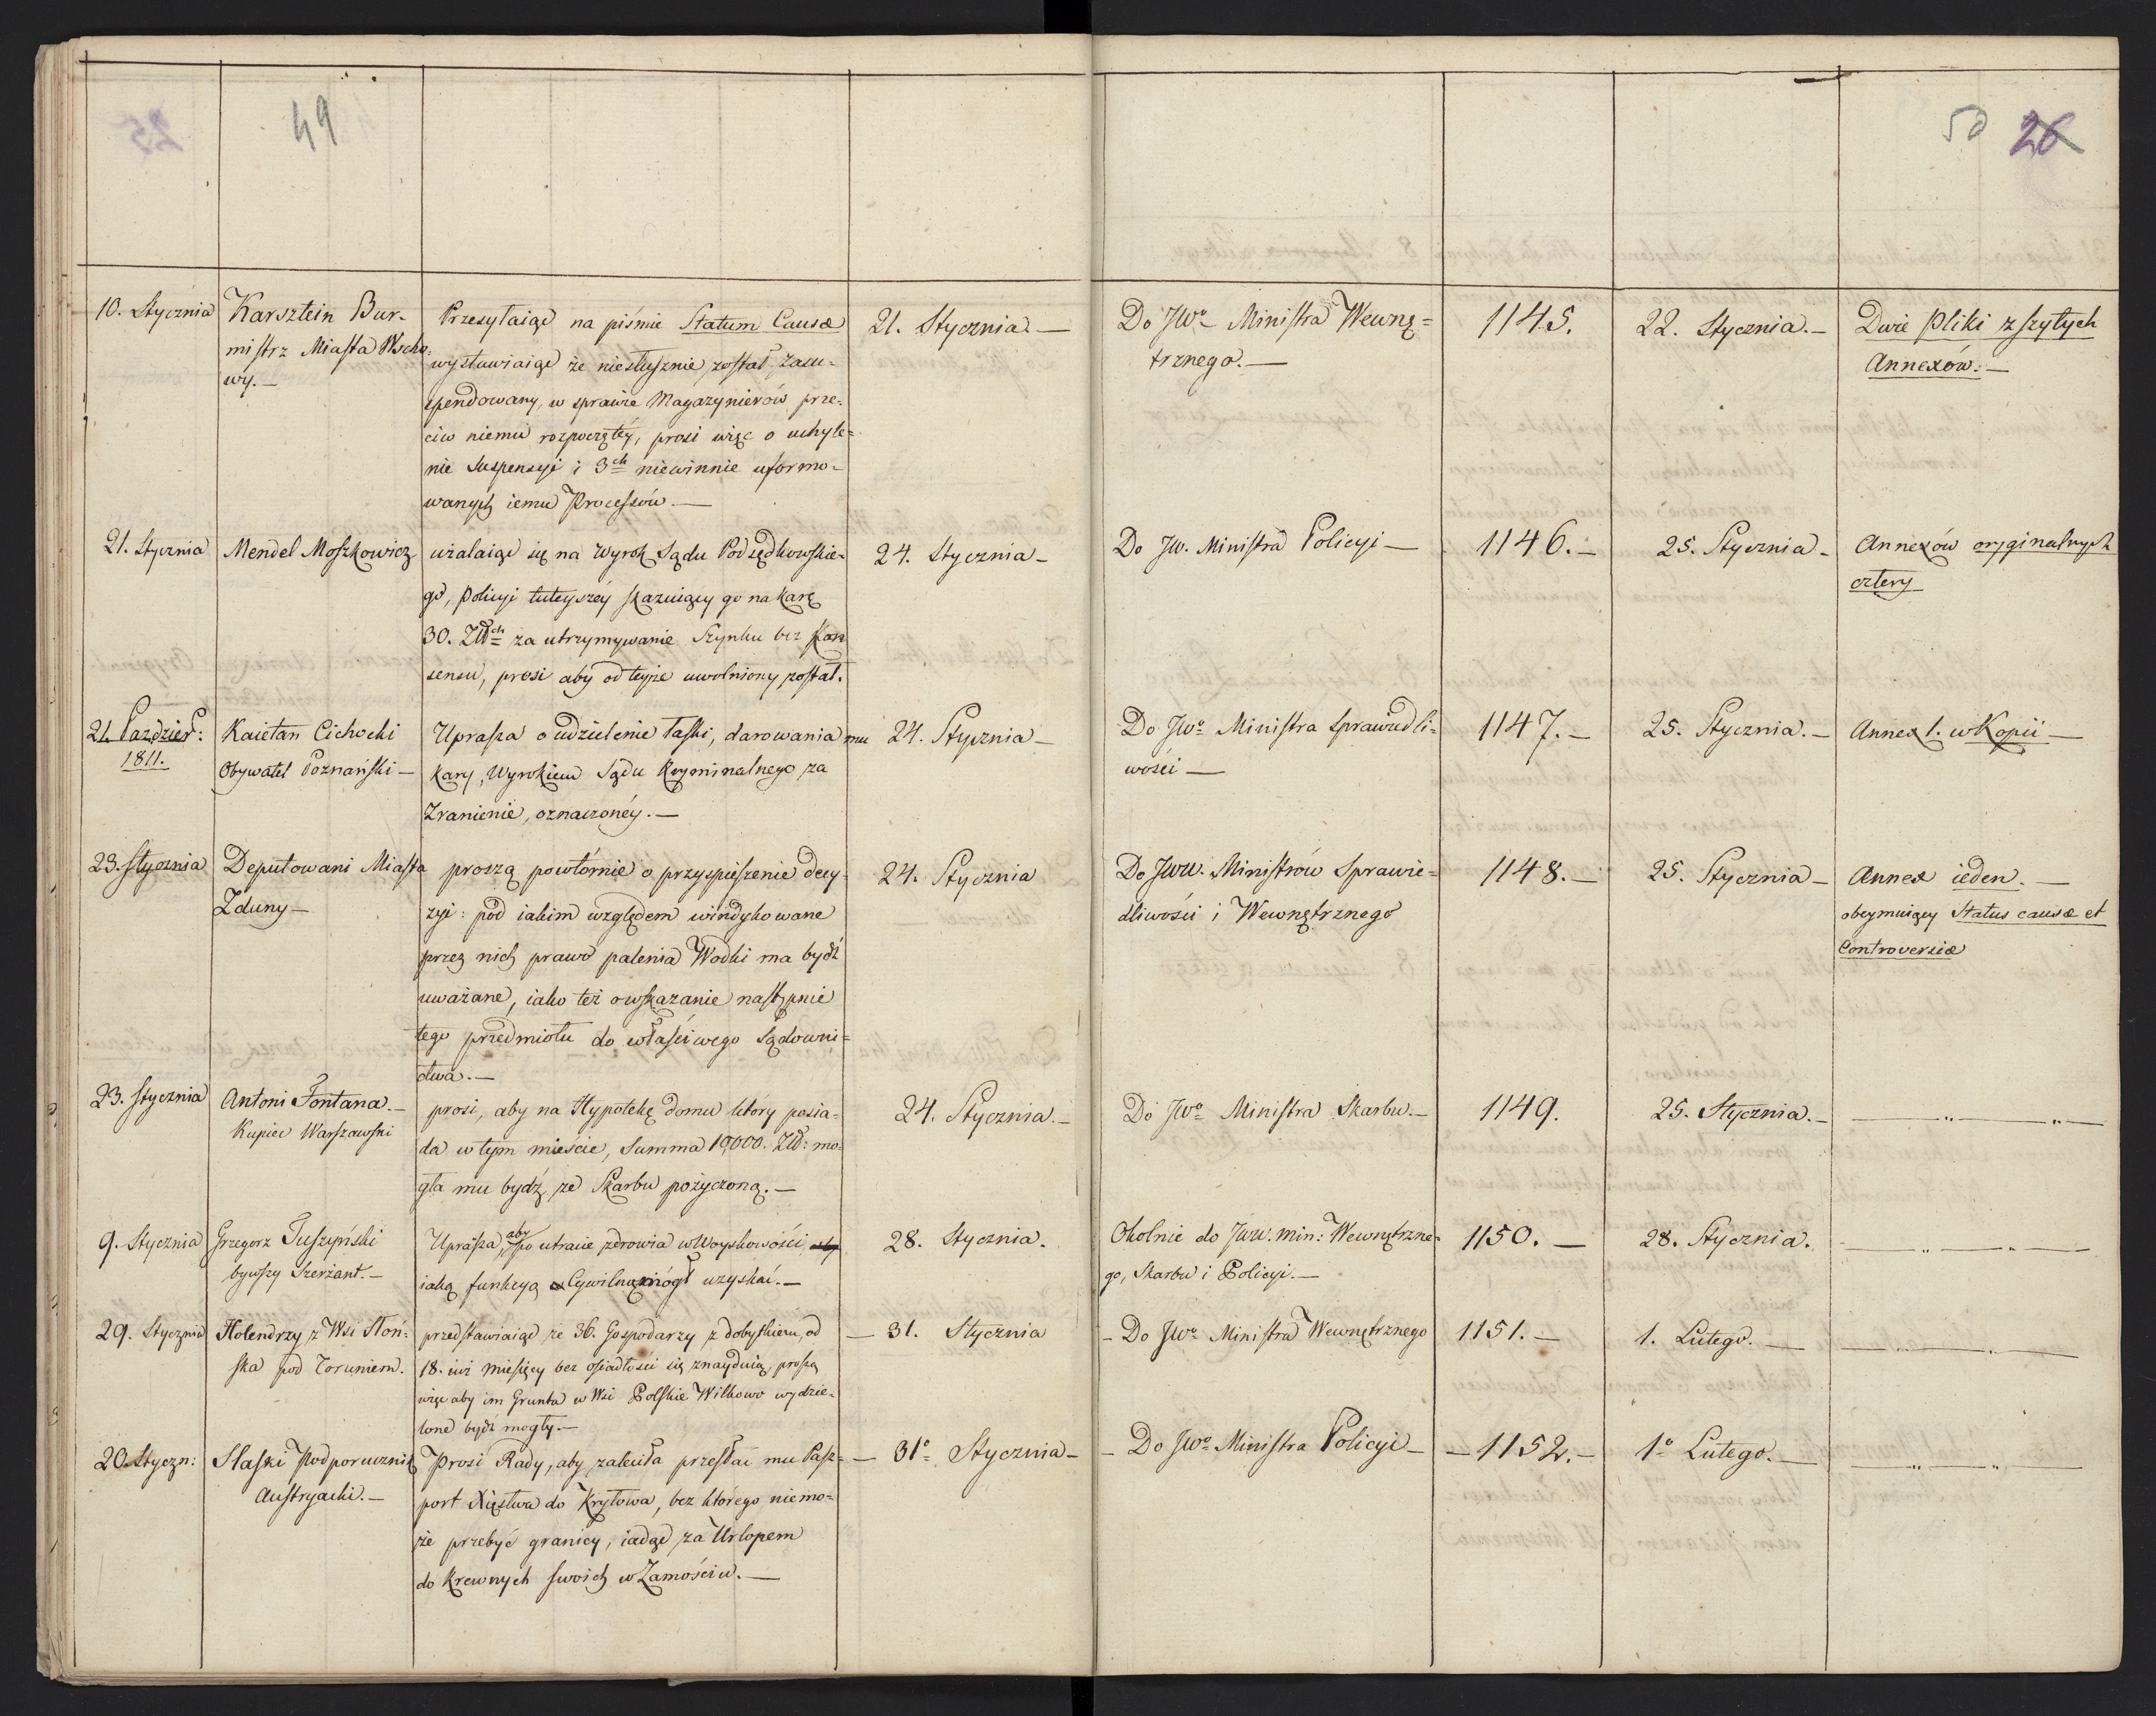 49
50 26
10. Stycznia
Karsztein Bur-
mistrz Miasta Wscho:
wy.—
Przesyłaiąc na piśmie Statum Causæ
wystawiaiąc że niesłusznie został, zasu-
spendowany, w sprawie Magazynierów prze-
ciw niemu rozpoczętéy, prosi więc o uchyle=
nie Suspensyi i 3ch niewinnie uformo-
wanych iemu Processów.—
21. Stycznia.—
Do JWo Ministra Wewnę=
trznego.—
1145.
22. Stycznia.—
Dwie Pliki zszytych
Annexów.—
21. Stycznia
Mendel Moszkowicz
użalaiąc się na Wyrok Sądu Podsędkowskie-
go, Policyi tuteyszéy skazuiący go na karę
30. Złłch za utrzymywanie Szynku bez Kon
sensu, prosi aby od teyże uwolniony został.
24. Stycznia—
Do JW. Ministra Policyi—
1146.—
25. Stycznia—
Annexów oryginalnych
cztery
21. Paździer:
1811.
Kaietan Cichocki
Obywatel Poznański—
Uprasza o udzielenie łaski, darowania mu
kary, Wyrokiem Sądu Kryminalnego za
Zranienie, oznaczonéy.—
24. Stycznia—
Do JWo Ministra Sprawiedli=
wości—
1147.—
25. Stycznia.—
Annex 1. w Kopii—
23. Stycznia
Deputowani Miasta
Zduny—
proszą powtórnie o przyspieszenie decy-
zyi: pod iakim względem windykowane
przez nich prawo palenia Wódki ma bydź
uważane, iako też o wskazanie następnie
tego przedmiotu do właściwego Sądowni=
ctwa.—
24. Stycznia
Do JWW. Ministrów Sprawie=
dliwości i Wewnętrznego
1148.—
25. Stycznia—
Annex ieden.—
obeymuiący Status causæ et
Controversiæ
23. Stycznia
Antoni Fontana.—
Kupiec Warszawski
prosi, aby na Hypotekę domu który posia-
da w tym mieście, Summa 10,000. Złł: mo-
gła mu bydź ze Skarbu pożyczoną.—
24. Stycznia.—
Do JWo Ministra Skarbu.—
1149.
25. Stycznia.—
—„—„—
9. Stycznia
Grzegorz Tuszyński
bywszy Szerżant.—
Uprasza, aby po utracie zdrowia w Woyskowości, aby
iaką funkcyą Cywilną mógł uzyskać.—
28. Stycznia.
Okolnie do JWW. Min: Wewnętrzne-
go, Skarbu i Policyi.—
1150.—
28. Stycznia.
—„—„—
29. Stycznia
Holendrzy z Wsi Słoń-
ska pod Toruniem.
przedstawiaiąc że 36. Gospodarzy z dobytkiem, od
18. iuż miesięcy bez osiadłości się znayduią, proszą
więc aby im Grunta w Wsi Polskie Wilkowo wydzie-
lone bydź mogły.—
— 31. Stycznia
— Do JWo Ministra Wewnętrznego
1151.—
1. Lutego.—
—„—„—
20. Styczn:
Słaski Podporucznik
Austryacki.—
Prosi Rady, aby zaleciła przesłać mu Pasz=
port Xięstwa do Kryłowa, bez którego niemo=
że przebyć granicy, iadąc za Urlopem
do Krewnych swoich w Zamościu.—
— 31o Stycznia—
— Do JWo Ministra Policyi—
— 1152.—
1o Lutego.—
—„—„—